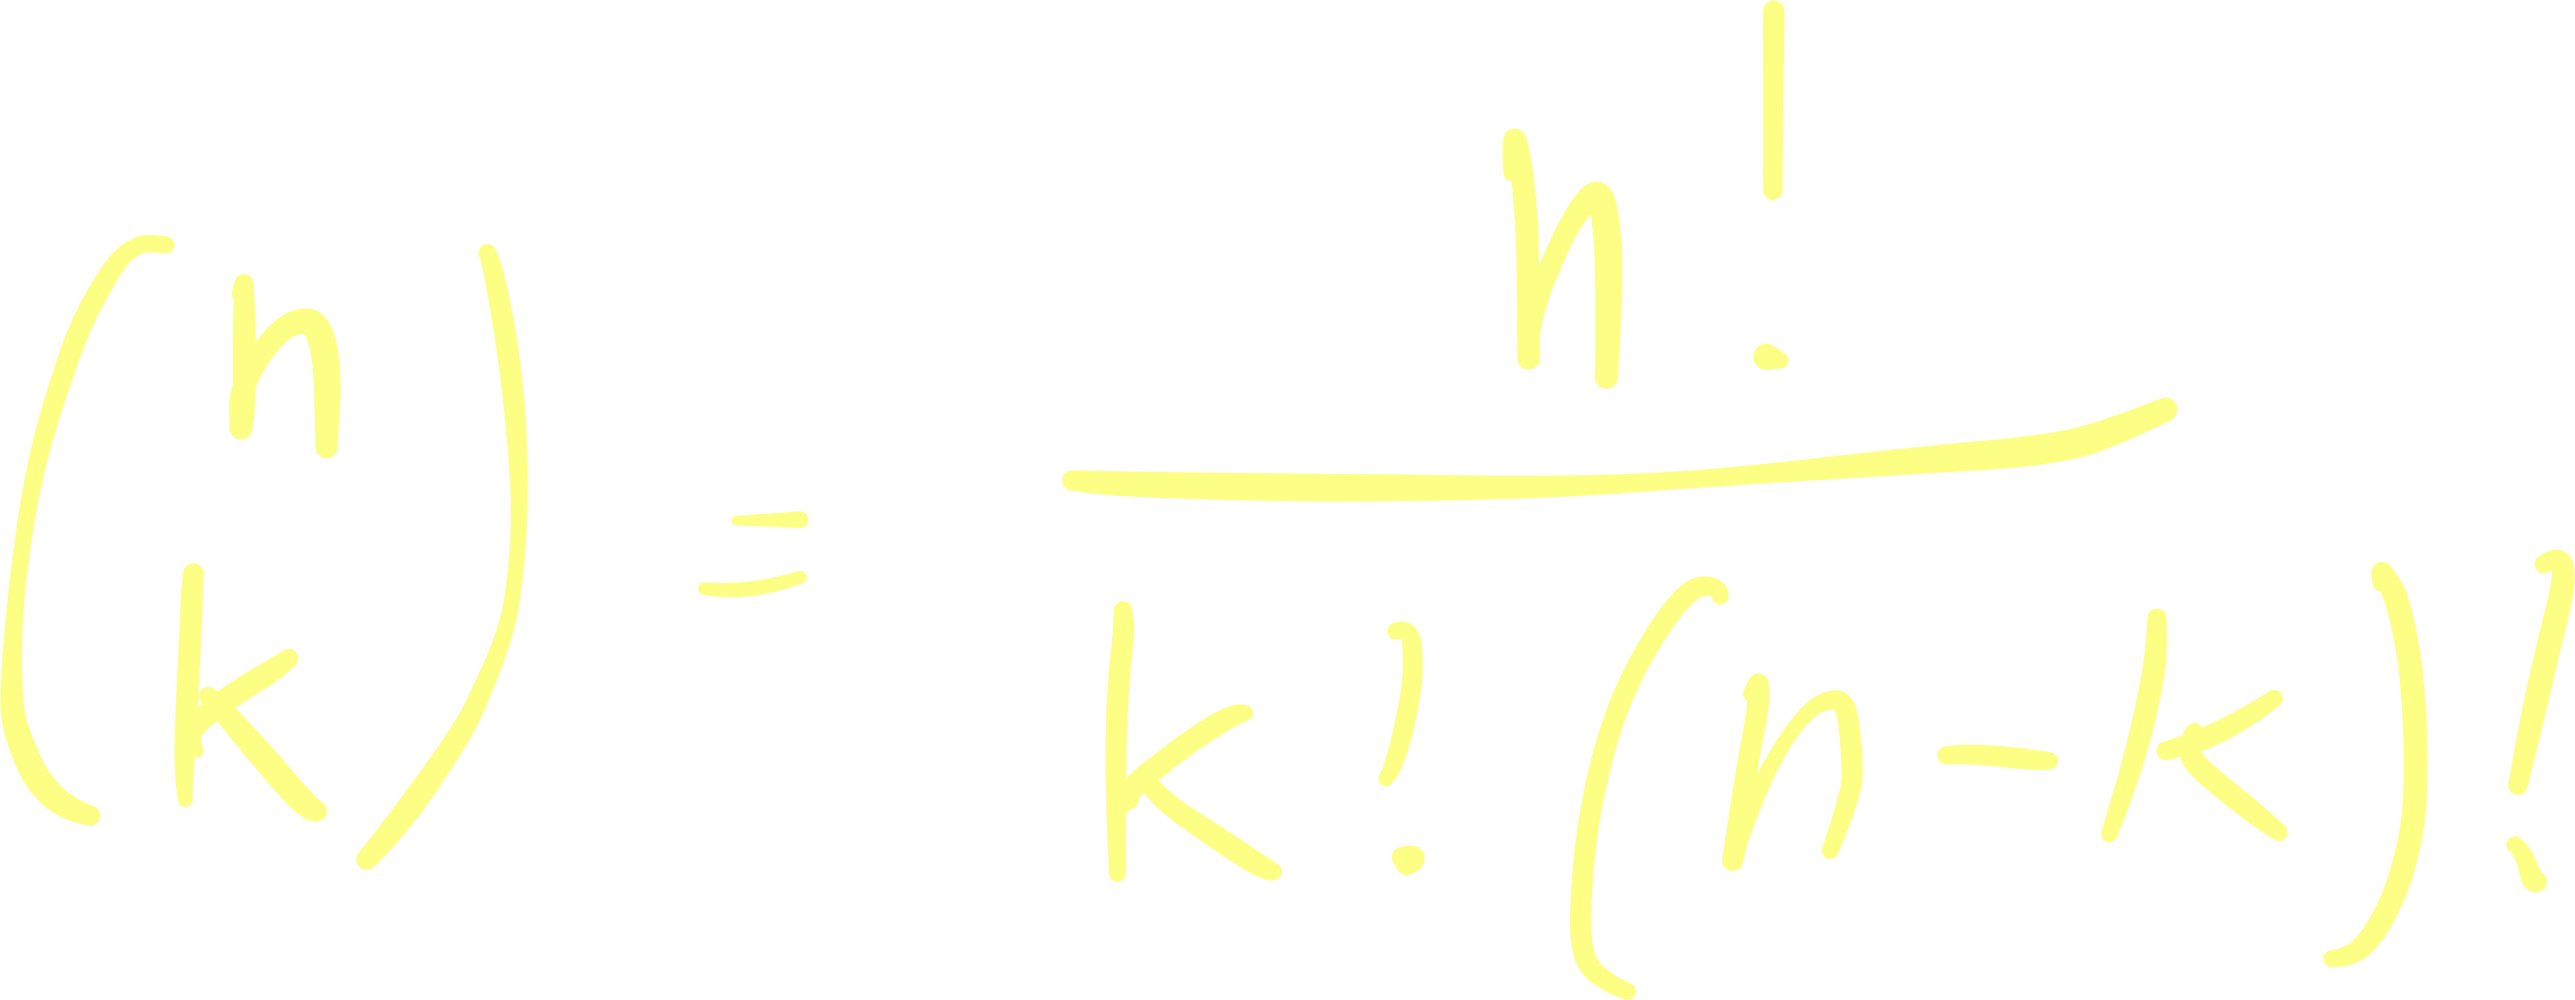 \binom{n}{k} = \frac{n!}{k!(n-k)!}